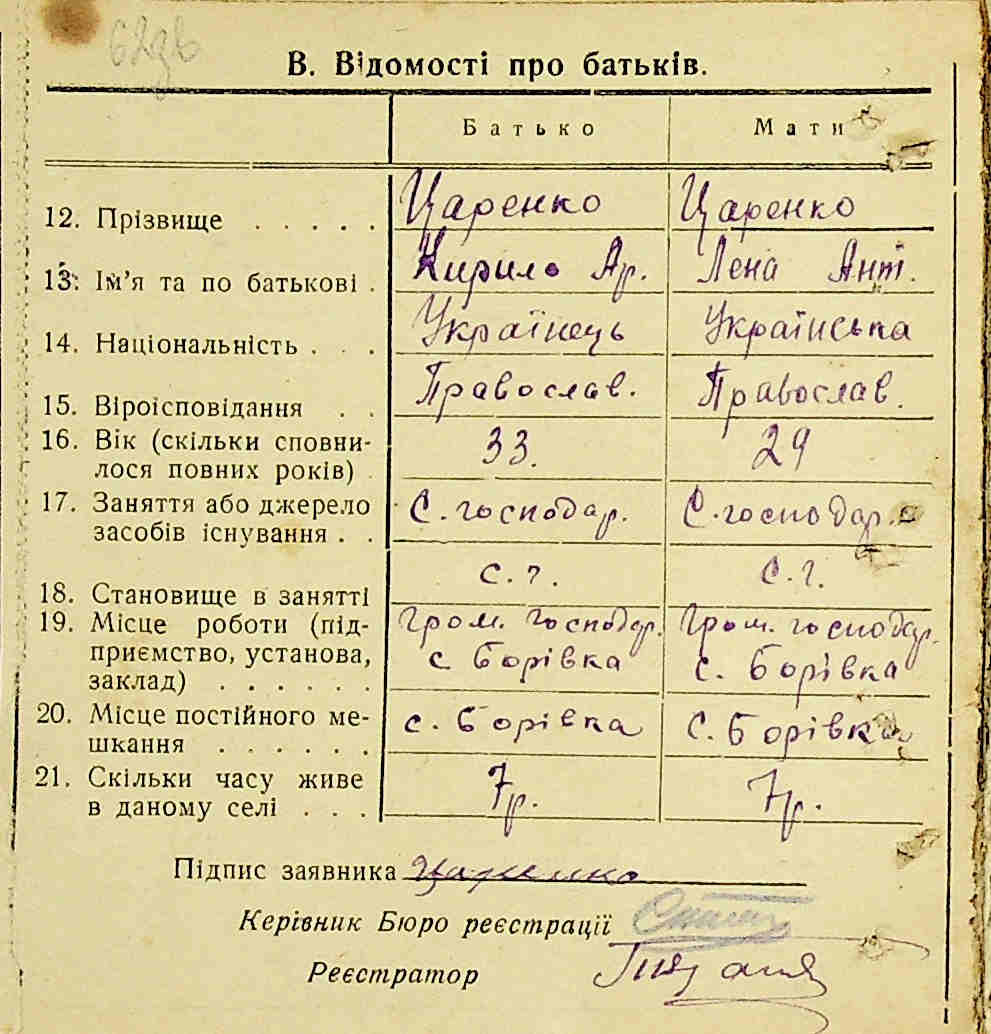 62зв
В. Відомості про батьків.
Батько Мати
12. Прізвище . . . . . Царенко Царенко
13. Ім'я та по батькові . Кирило Ар. Лена Ант.
14. Національність . . . Українець Українська
15. Віроісповідання . . Православ. Православ.
16. Вік (скільки сповни-
лося повних років) 33. 29
17. Заняття або джерело
засобів існування . . С. господар. С. господар.
18. Становище в занятті с. г. с. г.
19. Місце роботи (під- Гром. господар. Гром. господар.
приємство, установа, с. Борівка с. Борівка
заклад) . . . . . .
20. Місце постійного ме- с. Борівка С. Борівка
шкання . . . . . .
21. Скільки часу живе 7р. 7р.
в даному селі . . .
Підпис заявника Царенко
Керівник Бюро реєстрації
Реєстратор